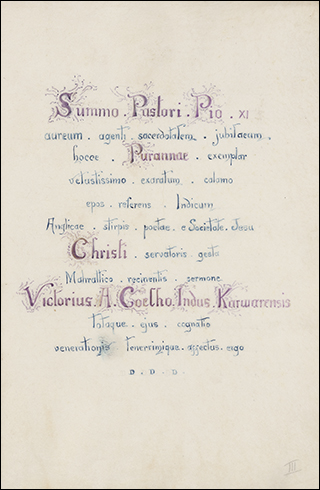 Summo . Pastori . Pio . XI
aureum . agenti . sacerdotalem . jubilaeum
hocce . Purannae . exemplar
vetustissimo . exaratum . calamo
epos . referens . Indicum
Anglicae . stirpis . poetae . e Societate . Jesu
Christi . servatoris . gesta
Mahrattico . recinentis . sermone
Victorius . A . Coelho . Indus . Karwarensis
totaque . ejus . cognatio
venerationis tenerrimique . affectus . ergo
D . D . D .
III